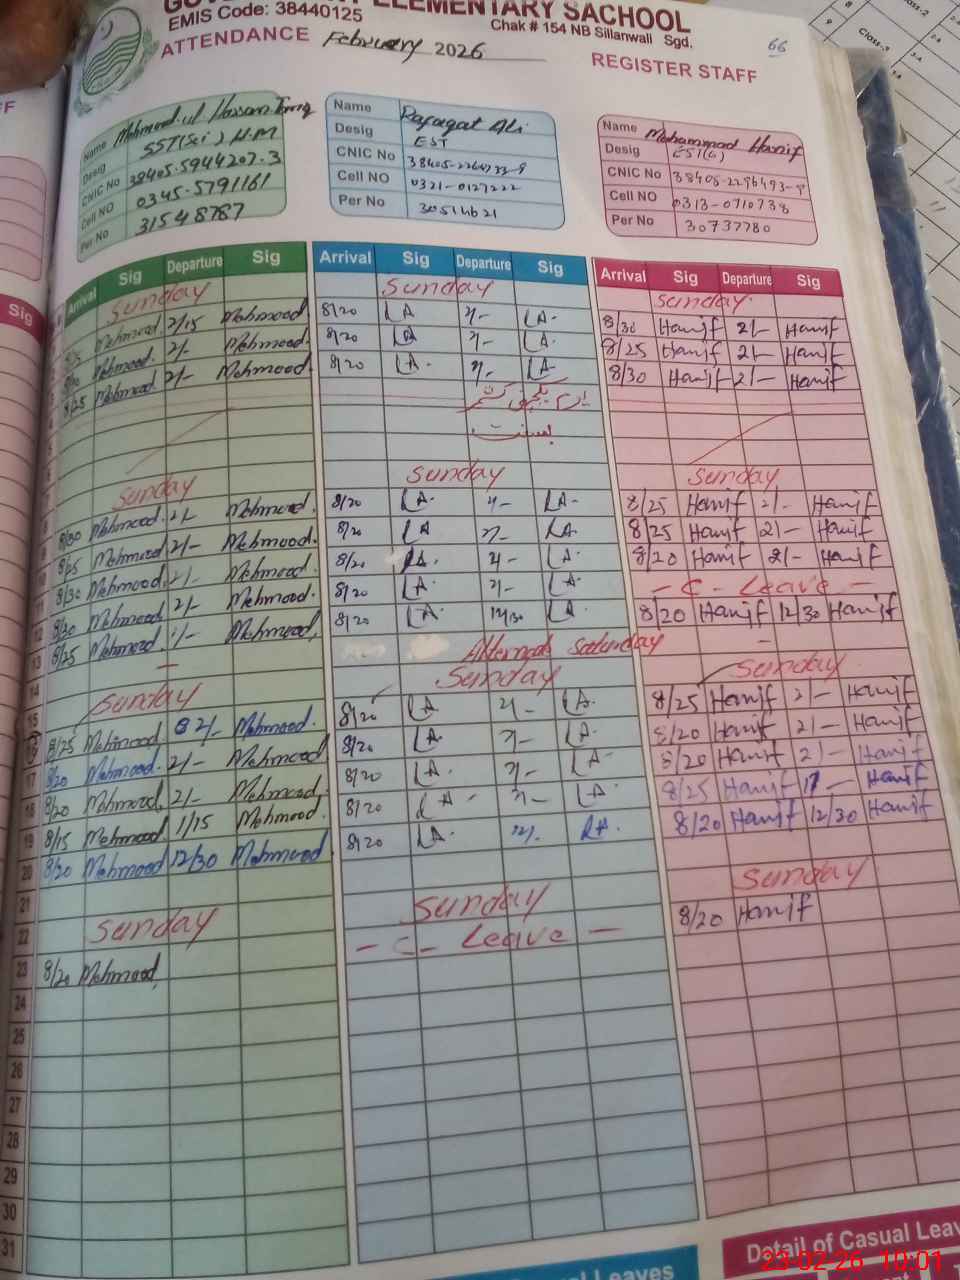 GOVERNMENT ELEMENTARY SACHOOL
EMIS Code: 38440125
Chak # 154 NB Sillanwali Sgd.
ATTENDANCE February 2026
REGISTER STAFF
66
Name Mehmood.ul Hassan
Desig SST(Sci) H.M
CNIC No 38405-5944207-3
Cell NO 0345-5791161
Per No 31548787
Name Rafaqat Ali
Desig EST
CNIC No
Cell NO 0321-0127222
Per No 30514621
Name Mohammad Hanif
Desig EST(G)
CNIC No
Cell NO 0313-0710738
Per No 30737780
Arrival Sig Departure Sig
Arrival Sig Departure Sig
Arrival Sig Departure Sig
Sunday Sunday Sunday
Mehmood 2/15 Mehmood 8/20 LA 2/- LA 8/30 Hanif 2/- Hanif
Mehmood 2/- Mehmood 8/20 LA 2/- LA 8/25 Hanif 2/- Hanif
8/25 Mehmood 2/- Mehmood 8/20 LA 2/- LA 8/30 Hanif 2/- Hanif
بسنت
Sunday Sunday Sunday
8/30 Mehmood 2/- Mehmood 8/20 LA 2/- LA 8/25 Hanif 2/- Hanif
8/25 Mehmood 2/- Mehmood 8/20 LA 2/- LA 8/25 Hanif 2/- Hanif
8/30 Mehmood 2/- Mehmood 8/20 LA 2/- LA 8/20 Hanif 2/- Hanif
8/30 Mehmood 2/- Mehmood 8/20 LA 2/- LA - C - Leave -
8/25 Mehmood Mehmood 8/20 LA 12/30 LA 8/20 Hanif 12/30 Hanif
Saturday
Sunday Sunday Sunday
8/25 Mehmood 2/- Mehmood 8/20 LA 2/- LA 8/25 Hanif 2/- Hanif
8/20 Mehmood 2/- Mehmood 8/20 LA 2/- LA 8/20 Hanif 2/- Hanif
8/20 Mehmood 2/- Mehmood 8/20 LA 2/- LA 8/20 Hanif 2/- Hanif
8/15 Mehmood 1/15 Mehmood 8/20 LA 2/- LA 8/25 Hanif Hanif
8/20 Mehmood 12/30 Mehmood 8/20 LA 12/- LA 8/20 Hanif 12/30 Hanif
Sunday Sunday Sunday
8/20 Mehmood - C - Leave - 8/20 Hanif
7
8
9
10
11
12
13
14
15
17
18
19
20
21
22
23
24
25
26
27
28
29
30
31
Leaves
Detail of Casual Leav
23-02-26 10:01